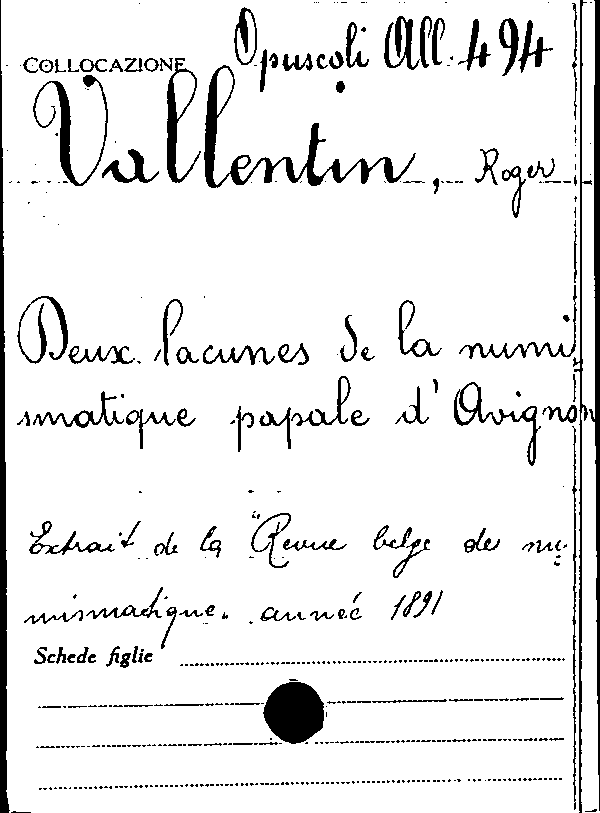 COLLOCAZIONE Opuscoli All. 494
Vallentin, Roger
Deux lacunes de la numi
smatique papale d'Avignon
Extrait de la "Revue belge de nu-
mismatique" année 1891
Schede figlie